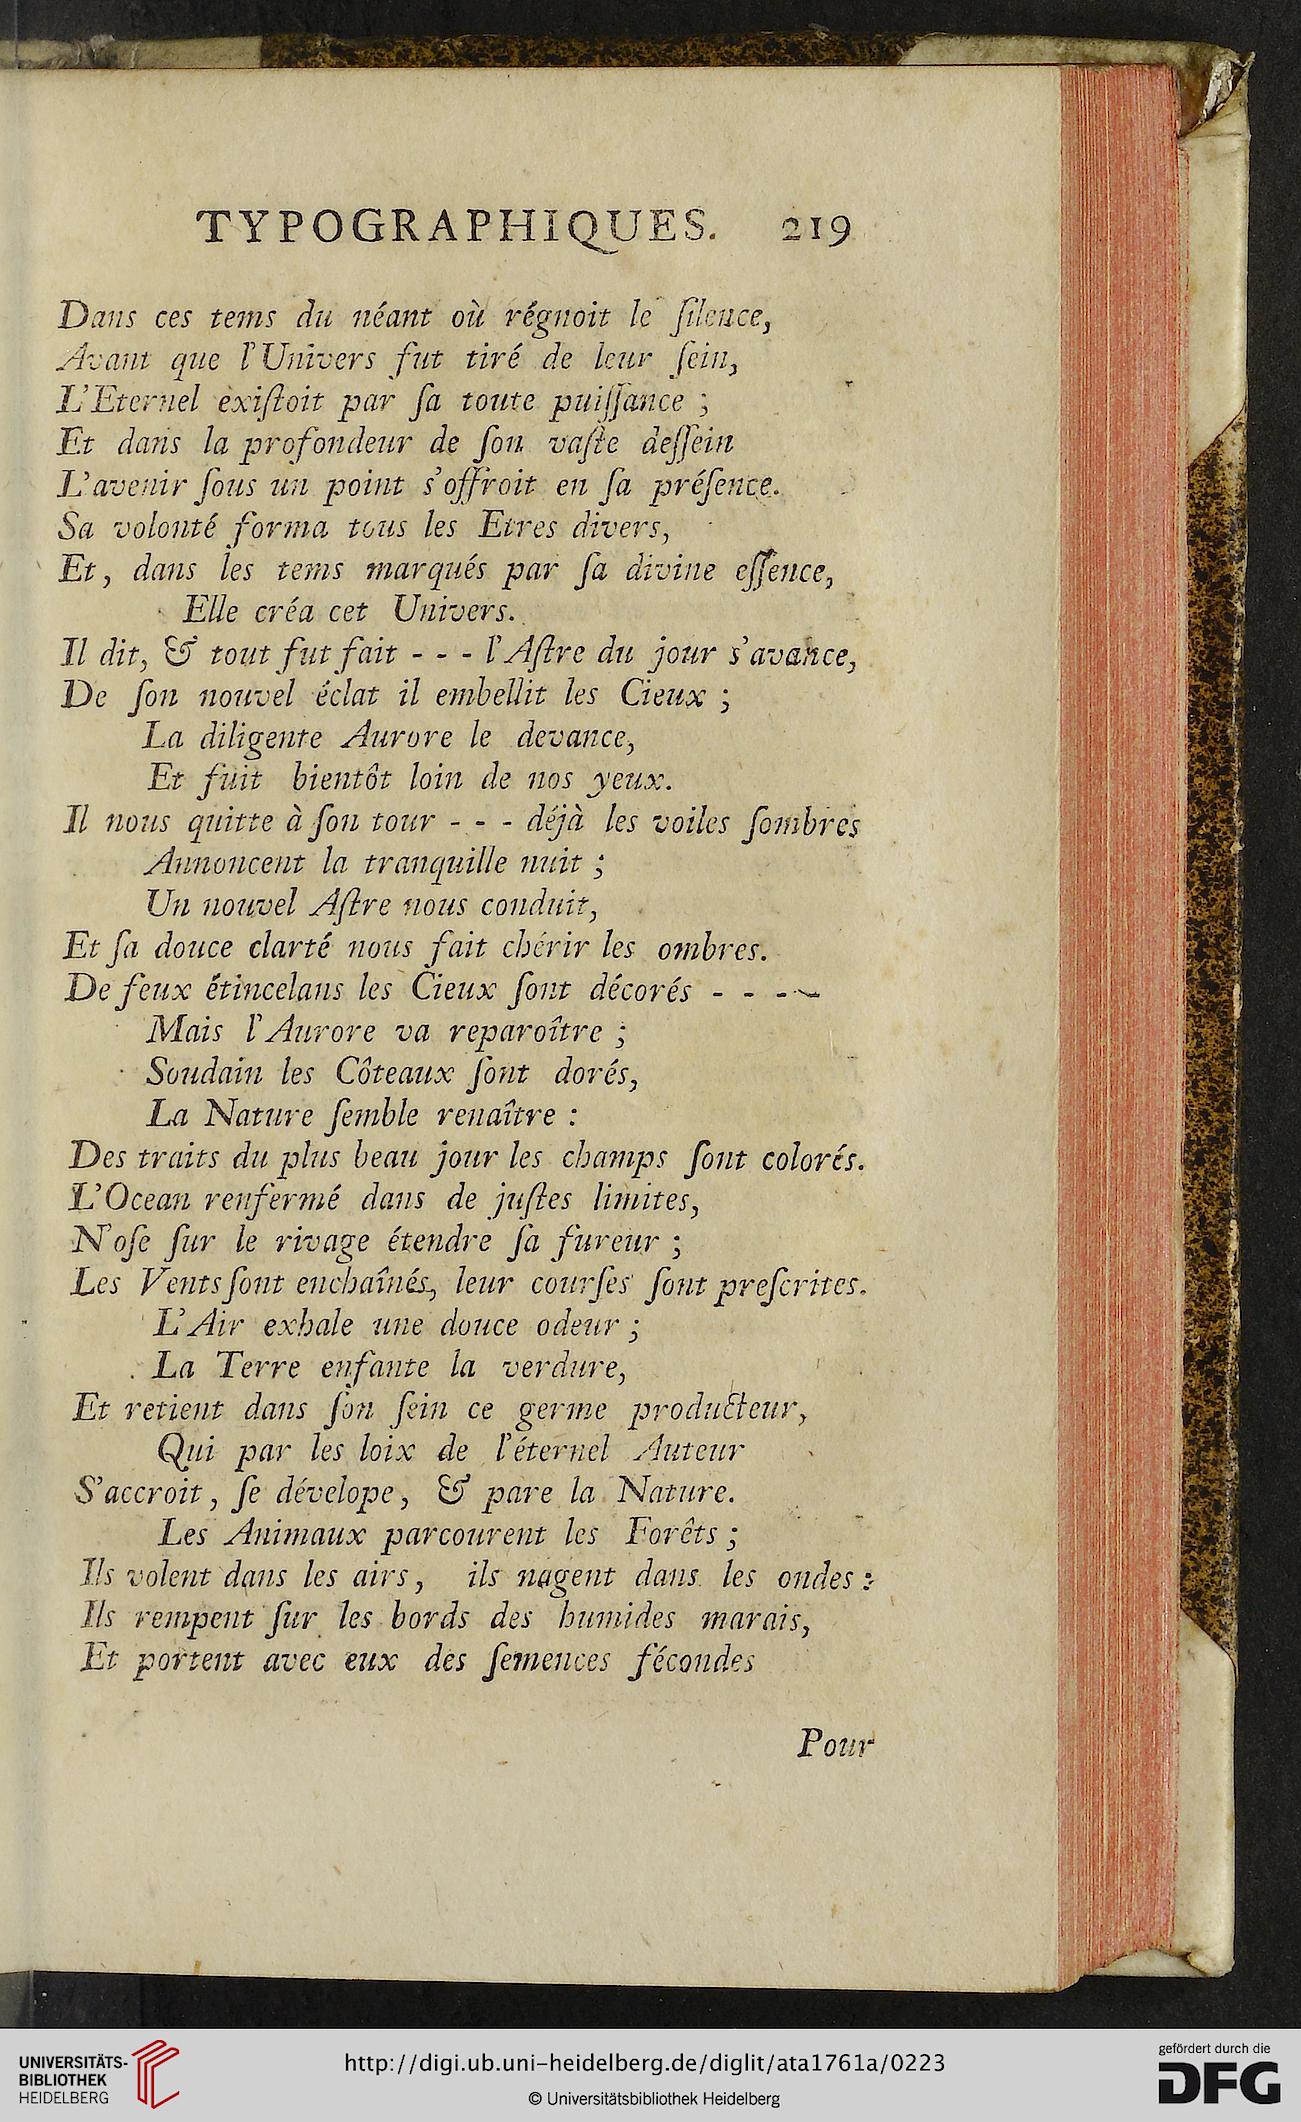 TYPOGRAPHIQUES. 219
Dans ces tems du néant où régnoit le ſilence,
Avant que l'Univers fut tiré de leur ſein,
L'Eternel exiſtoit par ſa toute puiſſance ;
Et dans la profondeur de ſon vaſte deſſein
L'avenir ſous un point s'offroit en ſa préſence.
Sa volonté forma tous les Etres divers,
Et, dans les tems marqués par ſa divine eſſence,
Elle créa cet Univers.
Il dit, & tout fut fait - - - l'Aſtre du jour s'avance,
De ſon nouvel éclat il embellit les Cieux ;
La diligente Aurore le devance,
Et fuit bientôt loin de nos yeux.
Il nous quitte à ſon tour - - - déjà les voiles ſombres
Annoncent la tranquille nuit ;
Un nouvel Aſtre nous conduit,
Et ſa douce clarté nous fait chérir les ombres.
De feux étincelans les Cieux ſont décorés - - - -
Mais l'Aurore va reparoître ;
Soudain les Côteaux ſont dorés,
La Nature ſemble renaître :
Des traits du plus beau jour les champs ſont colorés.
L'Ocean renfermé dans de juſtes limites,
N'oſe ſur le rivage étendre ſa fureur ;
Les Vents ſont enchaînés, leur courſes ſont preſcrites.
L'Air exhale une douce odeur ;
La Terre enfante la verdure,
Et retient dans ſon ſein ce germe producteur,
Qui par les loix de l'éternel Auteur
S'accroit, ſe dévelope, & pare la Nature.
Les Animaux parcourent les Forêts ;
Ils volent dans les airs, ils nagent dans les ondes :
Ils rempent ſur les bords des humides marais,
Et portent avec eux des ſemences fécondes
Pour
UNIVERSITÄTS-
BIBLIOTHEK
HEIDELBERG
http://digi.ub.uni-heidelberg.de/diglit/ata1761a/0223
© Universitätsbibliothek Heidelberg
gefördert durch die
DFG